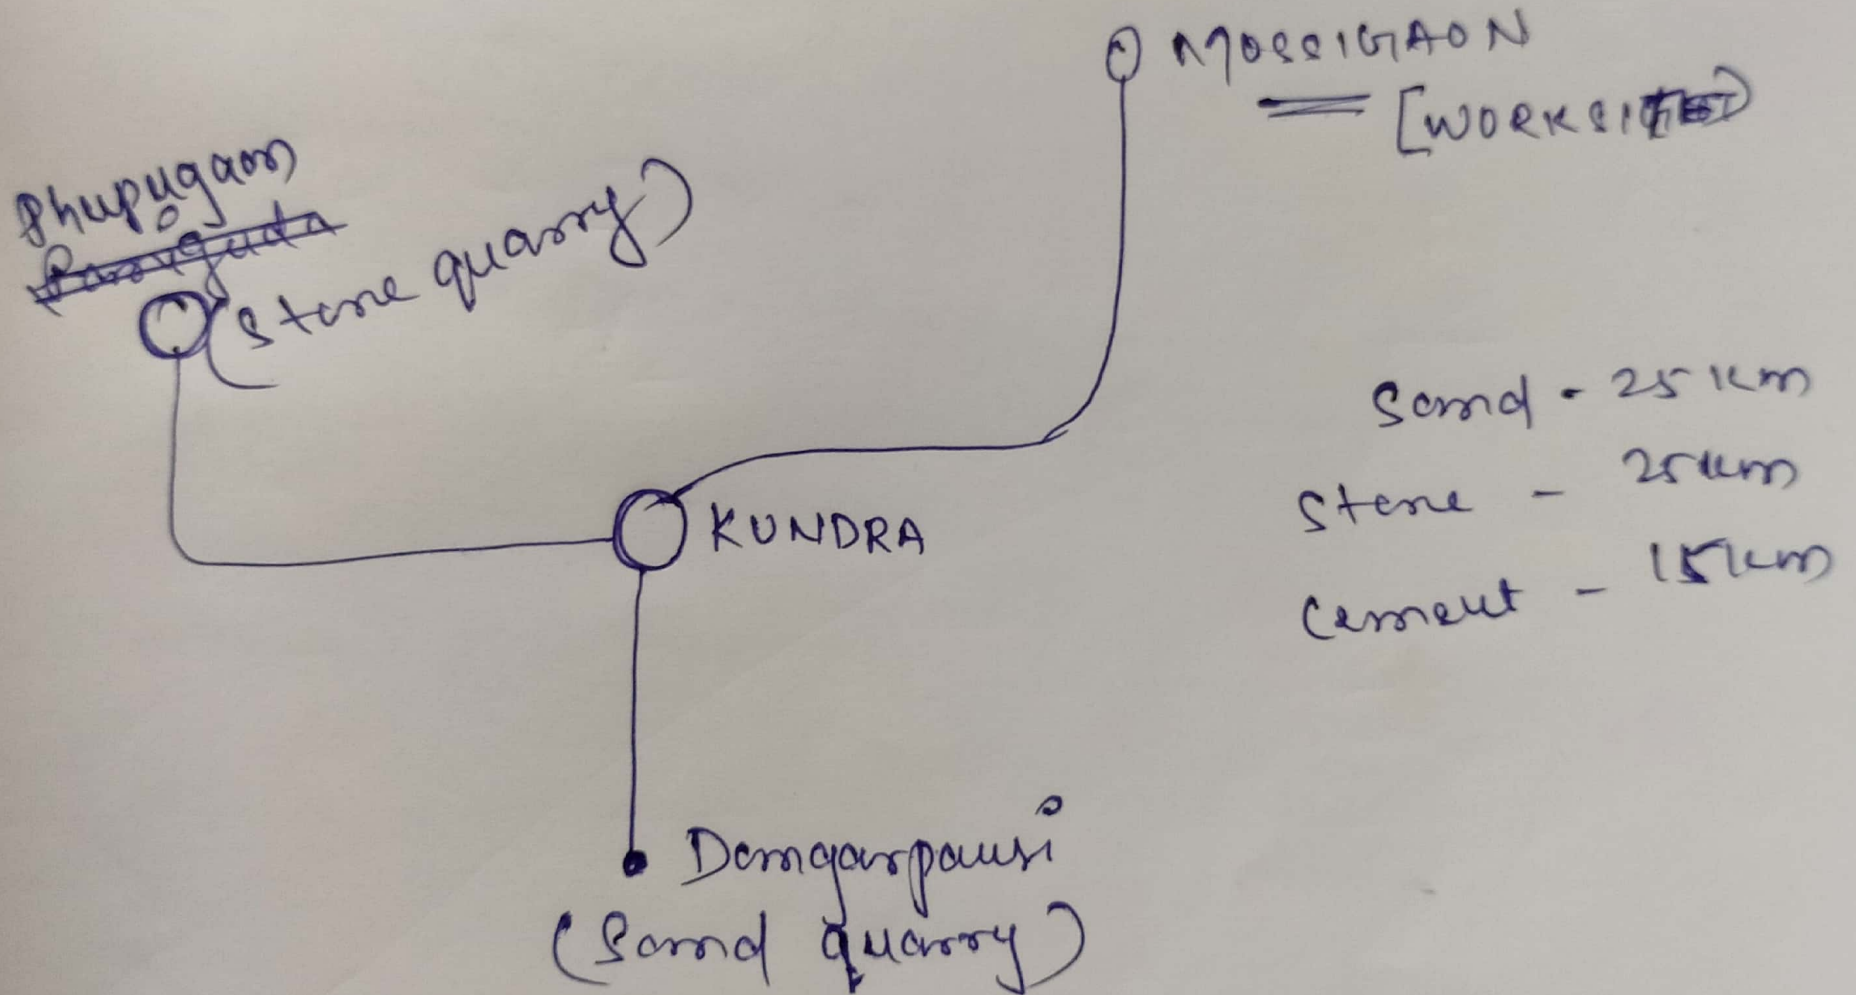 MOSSIGAON
[WORKSITE]
Phupugaon
(Stone quarry)
KUNDRA
Sand - 25 km
Stone - 25 km
Cement - 15 km
Dongarpausi
(Sand quarry)